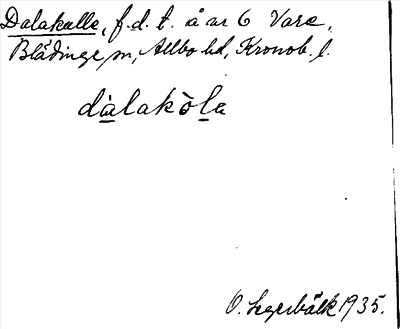 Dalakalle, f.d.t. å ar 6 Vare,
Blädinge sn, Allbo hd, Kronob. l.
dàlakòla
O. Lagerbälk 1935.